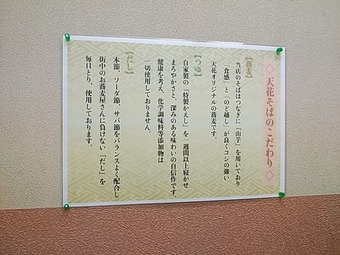 ◇天花そばのこだわり◇
【蕎麦】
当店のそばはつなぎに「山芋」を用いており
「食感」と「のど越し」が良くコシの強い
天花オリジナルの蕎麦です。
【つゆ】
自家製の「特製かえし」を一週間以上寝かせ
まろやかさと、深みのある味わいの自信作です。
健康を考え、化学調味料等添加物は
一切使用しておりません。
【だし】
本節、ソーダ節、サバ節をバランスよく配合し
街中のお蕎麦屋さんに負けない「だし」を
毎日とり、使用しております。